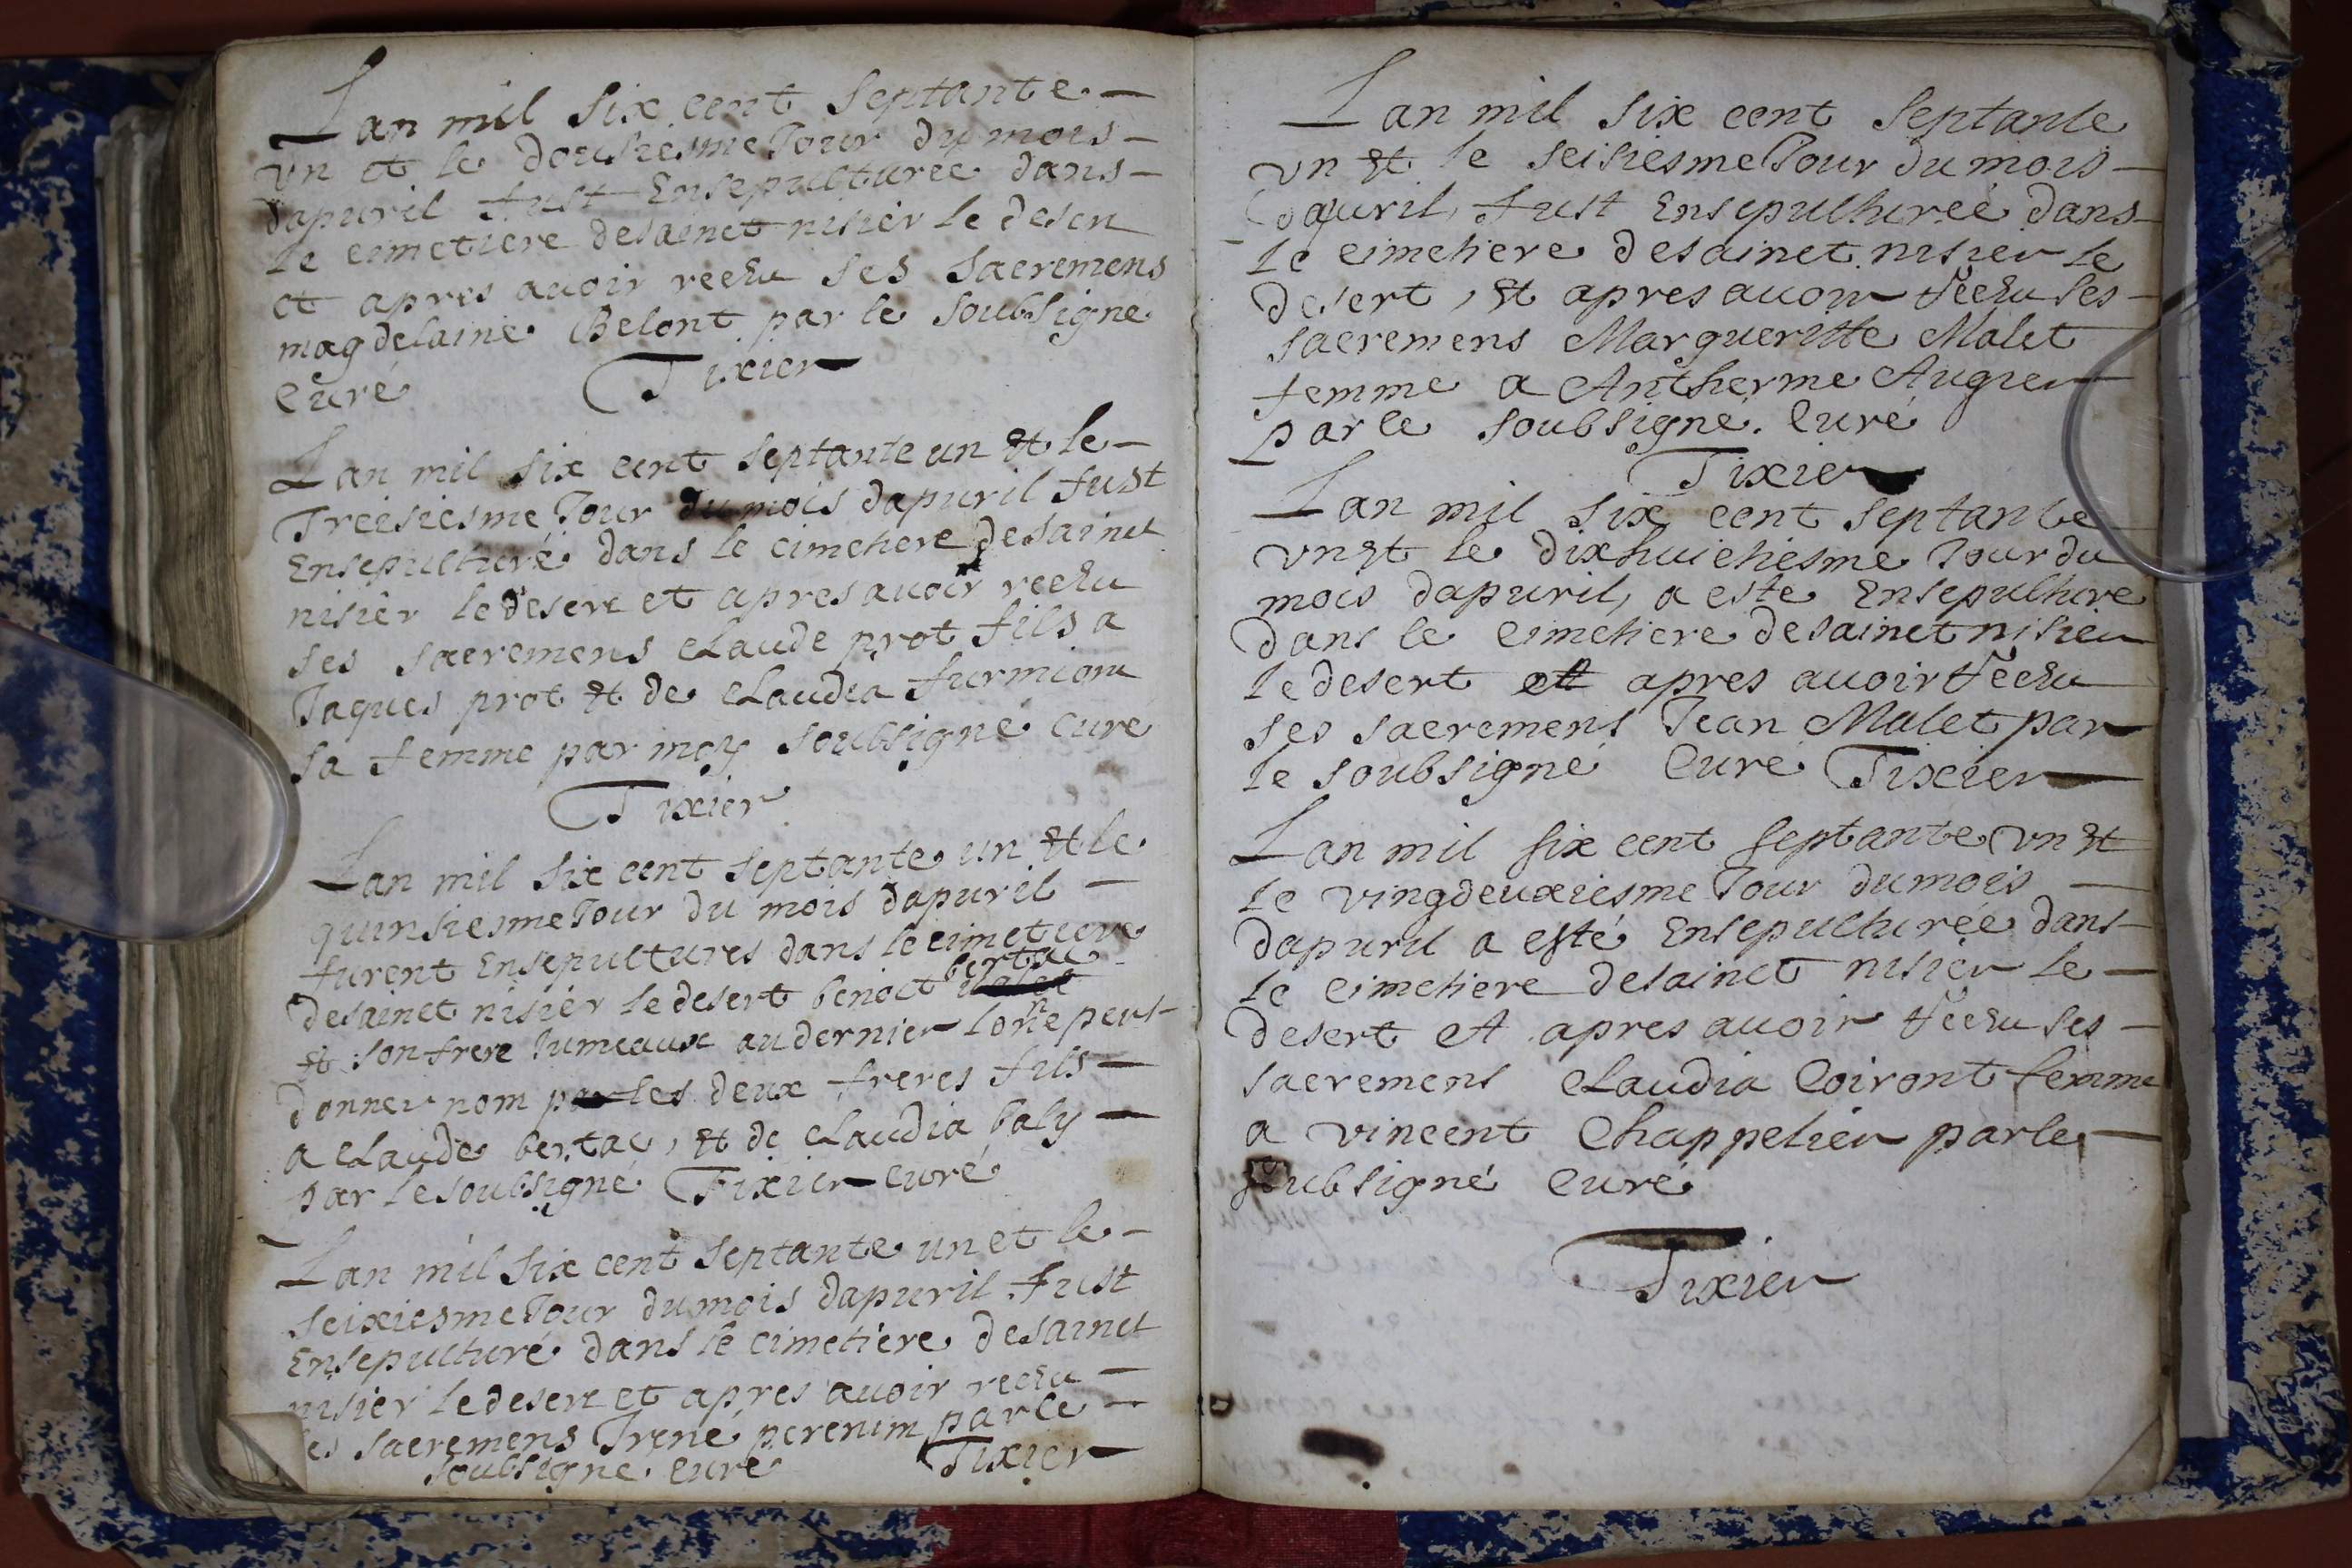 Lan mil six cent septante
vn et le doushiesme Jour du mois
dapuril fust Ensepulturée dans
le cimetiere desainct nisier le desert
et apres auoir recëu ses sacremens
magdelaine Belont par le soubsigné
Curé Tixier
Lan mil six cent septante un et le
Treisiesme Jour du mois dapuril fust
Ensepulturé dans le cimetiere desainct
nisier le desert et apres auoir recëu
ses sacremens claude prot fils a
Jaques prot et de claudia furmiom
sa femme par moy soubsigné curé
Tixier
Lan mil six cent septante un et le
quinsiesme Jour du mois dapuril
furent Ensepultures dans le cimetiere
bertac
desainct nisier le desert benoict
et son frere Jumeaux au dernier lon ne peut
donner nom les deux freres fils
a claude bertac, et de claudia baly
par le soubsigné Tixier curé
Lan mil six cent septante un et le
seixiesme Jour du mois dapuril fust
Ensepulturé dans le cimetiere desainct
nisier le desert et apres auoir recëu
ses sacremens Irené perenim par le
soubsigné curé Tixier
Lan mil six cent septante
vn et le seisiesme Jour du mois
dauril, fust Ensepulturée dans
le cimetiere desainct nisier le
desert, et apres auoir recëu ses
sacremens Margueritte Malet
femme a Antherme Augier
par le soubsigné Curé
Tixier
Lan mil six cent septante
vn et le dixhuictiesme Jour du
mois dapuril, a este Ensepulture
dans le cimetiere desainct nisier
le desert et apres auoir recëu
ses sacremens Jean Malet par
le soubsigné Curé Tixier
Lan mil six cent septante vn et
le vingdeuxiesme Jour du mois
dapuril a esté Ensepulturée dans
le cimetiere desainct nisier le
desert et apres auoir recëu ses
sacremens claudia Coiront femme
a vincent Chappelier par le
soubsigné Curé
Tixier